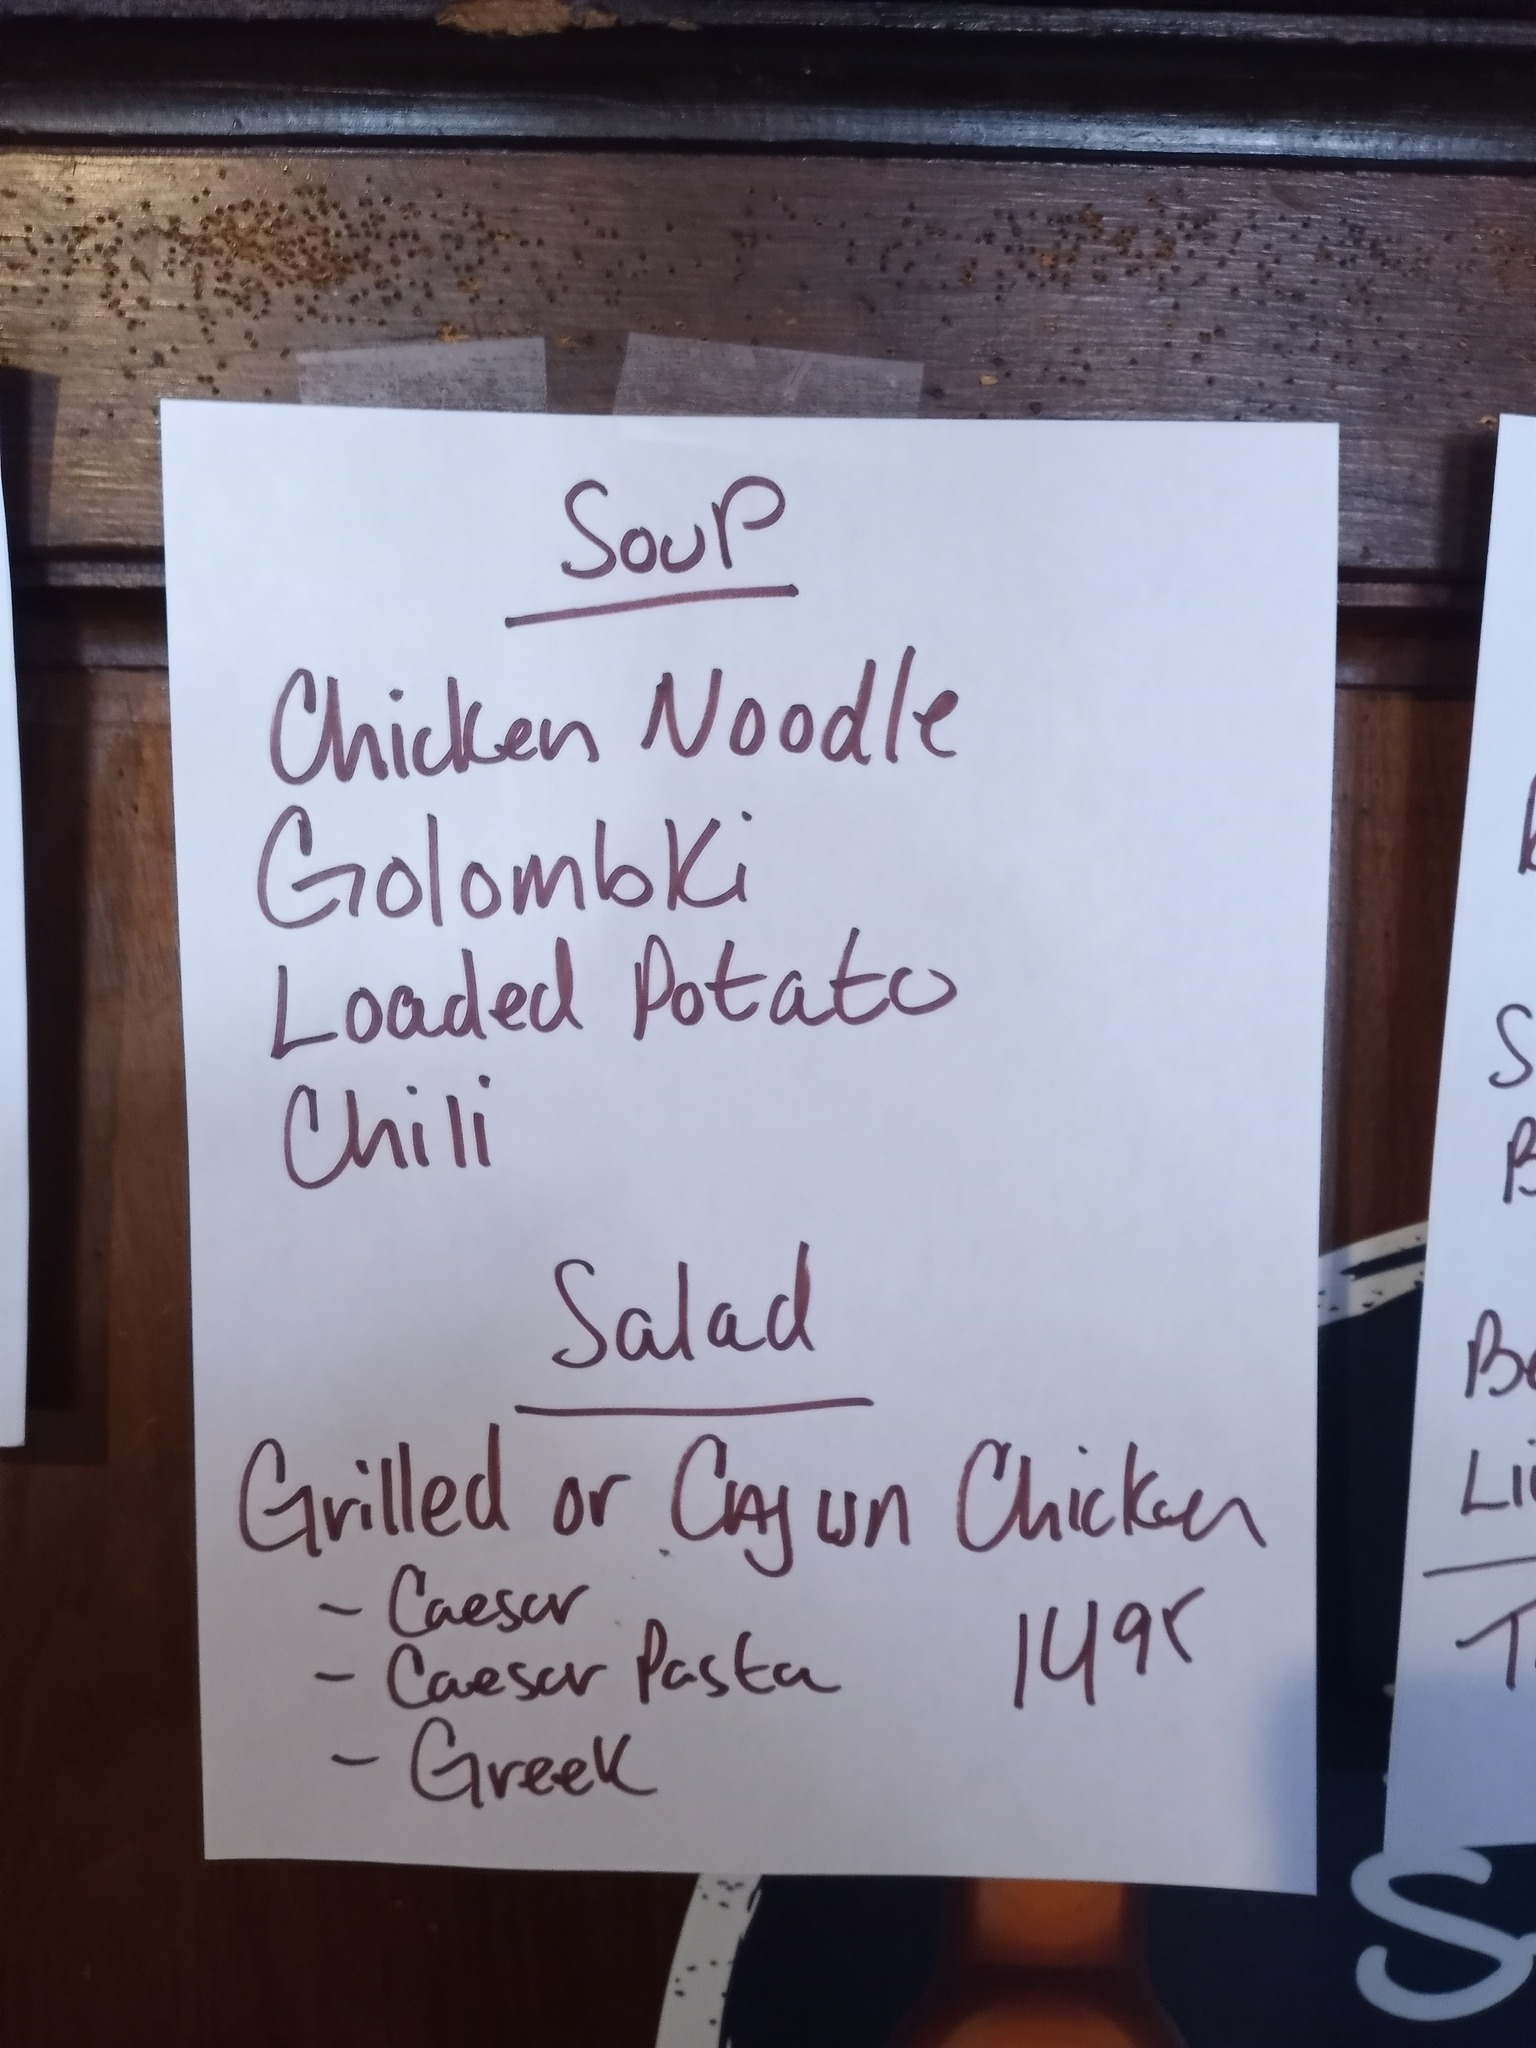 Soup
Chicken Noodle
Golombki
Loaded Potato
Chili
Salad
Grilled or Cajun Chicken
- Caesar
- Caesar Pasta 1495
- Greek
S
B
Be
Li
T
S